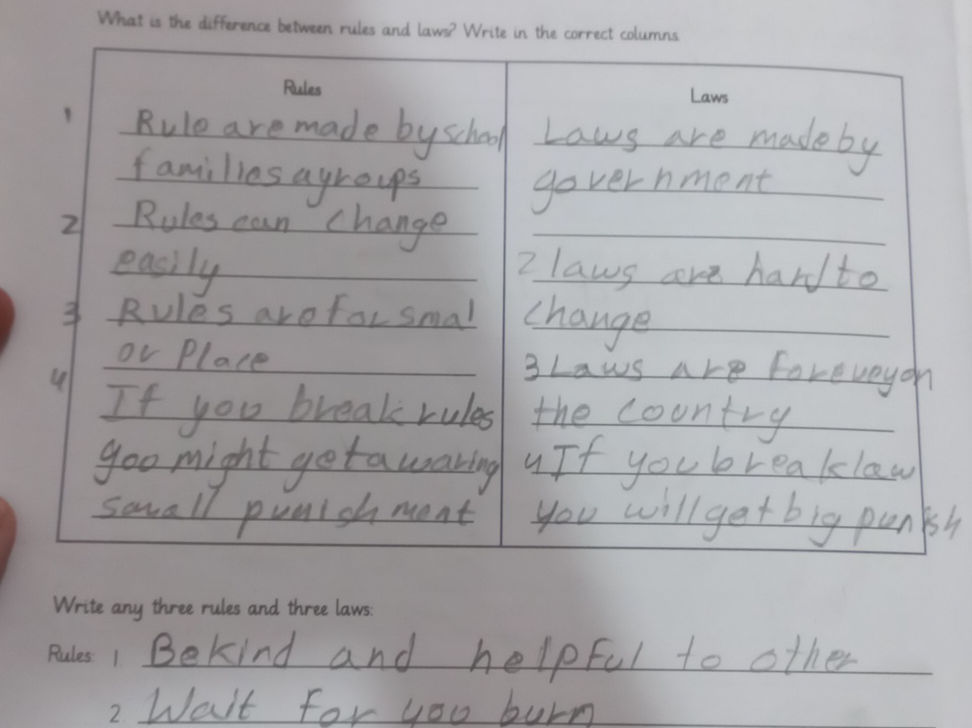 What is the difference between rules and laws? Write in the correct columns
Rules
1 Rule are made by school
families a groups
2 Rules can change
easily
3 Rules are for smal
or Place
4 If you break rules
yoo might get a waring
small punishment
Laws
Laws are made by
government
2 laws are hard to
change
3 Laws are for eveyon
the country
4 If you break law
you will get big punish
Write any three rules and three laws:
Rules: 1. Be kind and helpful to other
2. Wait for yoo burn